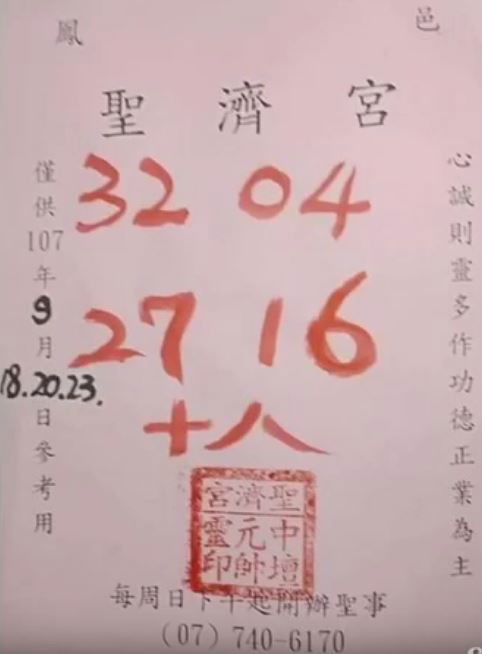 鳳 邑
聖濟宮
心誠則靈多作功德正業為主
32 04
27 16
十八
僅供107年9月18.20.23.日參考用
聖濟宮
中壇元帥靈印
每周日下午起開辦聖事
(07) 740-6170